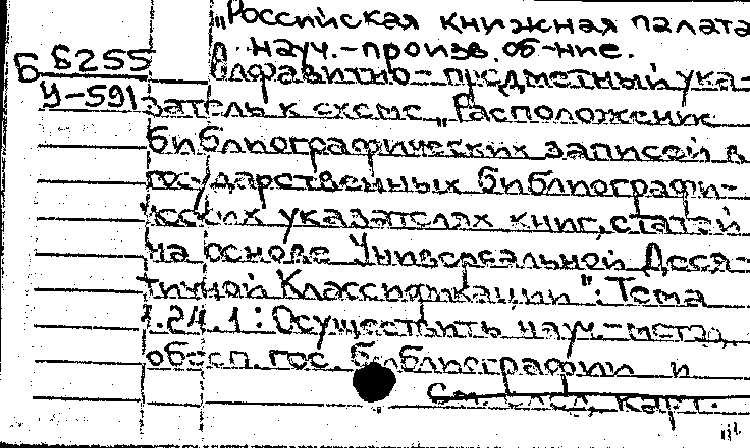 „Российская книжная палата
науч.-произв. об-ние.
Б Б255
У-591
Алфавитно-предметный ука-
затель к схеме „Расположение
библиографических записей в
государственных библиографи-
ческих указателях книг, статей
на основе Универсальной Деся-
тичной Классификации": Тема
1.24.1: Осуществить науч.-метод.
обесп. гос. библиографии и
См. след. карт.